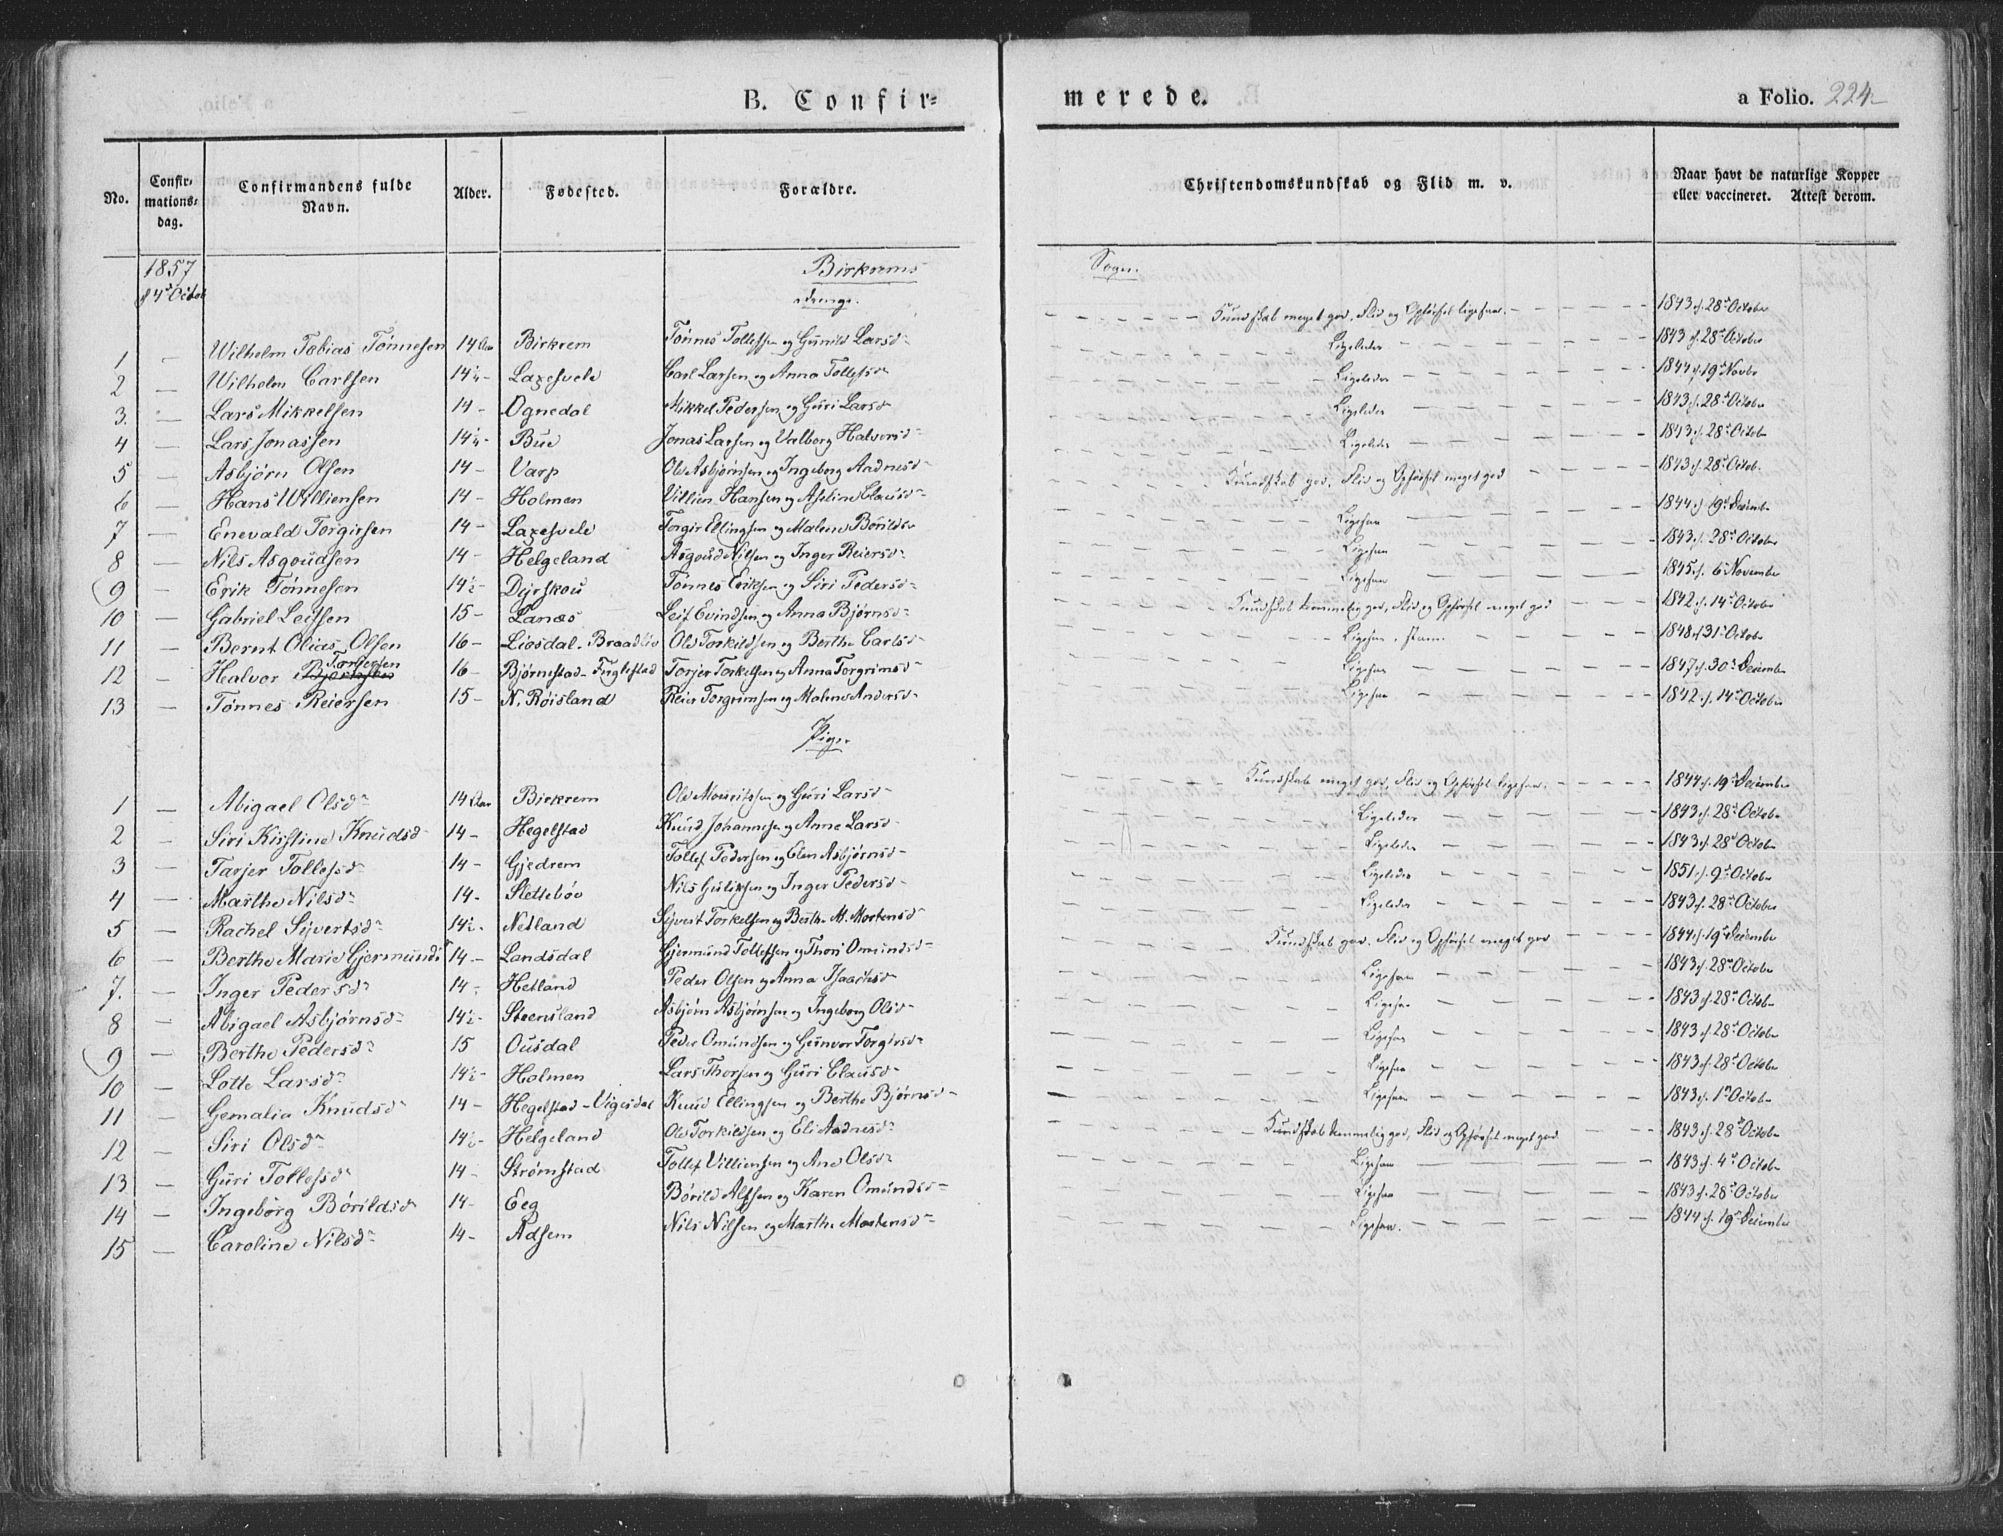 B. Confir=
merede.
a Folio. 224
No.
Confir-
mations-
dag.
Confirmandens fulde
Navn.
Alder.
Fødested.
Forældre.
Christendomskundskab og Flid m. v.
Naar havt de naturlige Kopper
eller vaccineret. Attest derom.
1857
d 4de Octob
Birkrems
Sogn.
Drenge.
1 — Wilhelm Tobias Tønnesen 14 Aar Birkrem Tønnes Tollefsen og Gunild Larsd Kundskab meget god, Flid og Opførsel ligesaa. 1843 d. 28de October
2 — Wilhelm Carlsen 14½ - Laxesvele Carl Larsen og Anna Tollefsd Ligeledes 1843 d. 28de October
3. — Lars Mikkelsen 14 - Ognedal Mikkel Pedersen og Guri Larsd Ligeledes 1844 d. 19de Novbr
4 — Lars Jonassen 14½ - Bue Jonas Larsen og Valborg Halvorsd Ligeledes 1843 d. 28de October
5 — Asbjörn Olsen 14 - Varp Ole Asbjørnsen og Ingeborg Aadnesd Ligeledes 1843 d. 28de Octob
6 — Hans Williensen 14 - Holmen Villien Hansen og Aseline Clausd Kundskab god, Flid og Opførsel meget god 1843 d. 28de Octob.
7 — Enevald Torgirsen 14 - Laxesvele Torgir Ellingsen og Malene Børildsd Ligesaa 1844 d. 19de Decemb
8 — Nils Asgoudsen 14 - Helgeland Asgoud Nilsen og Inger Reiersd Ligesaa 1843 d. 28de October
9 — Erik Tønnesen 14½ - Dyrskou Tønnes Eriksen og Siri Pedersd Ligesaa 1845 d. 6te November
10 — Gabriel Leifsen 15 - Lanæs Leif Evindsen og Anna Bjørnsd Kundskab temmelig god, Flid og Opførsel meget god 1842 d. 14de October
11 — Bernt Olias Olsen 16 - Liosdal - Braadlie Ole Torkildsen og Berthe Carlsd Ligesaa 1848 d 31te Octob
12 — Halvor Torjersen 16 - Bjørnestad - Fuglestad Torjer Torkelsen og Anna Torgrimsd Ligesaa 1847 d. 30te December
13 — Tønnes Reiersen 15 - N. Røisland Reier Torgrimsen og Malene Andersd Ligesaa 1842 d. 14de October
Piger
1 — Abigael Olsdr 14 Aar Birkrem Ole Mouritzen og Guri Larsd Kundskab meget god, Flid og Opførsel ligesaa. 1844 d. 19de December
2 — Siri Kirstine Knudsd 14 - Hegelstad Knud Johannesen og Anne Larsd Ligeledes 1843 d. 28de October
3 — Tarjer Tollefsd 14 - Gjedrem Tollef Pedersen og Elen Asbjørnsd Ligeledes 1843 d. 28de October
4 — Marthe Nilsd 14 - Slettebøe Nils Guliksen og Inger Pedersd Ligeledes 1851 d. 9de October
5 — Rachel Sivertsdr 14½ - Netland Sivert Torkelsen og Berthe M. Mortensd Ligeledes 1843 d. 28de October
6 — Berthe Marie Gjermundsd 14 - Landsdal Gjermund Tollefsen og Thori Omundsd Kundskab god, Flid og Opførsel meget god 1844 d. 19de December
7. — Inger Pedersdr 14 - Hetland Peder Olsen og Anna Isaachsd Ligesaa 1843 d. 28de October
8 — Abigael Asbjørnsdr 14½ - Steensland Asbjørn Asbjørnsen og Ingeborg Olsd Ligesaa 1843 d. 28de October
9 — Berthe Pedersdr 15 Ousdal Peder Omundsen og Gunvor Torgirsdr Ligesaa 1843 d. 28de October
10 — Lotte Larsdr 14½ - Holmen Lars Thorsen og Guri Clausd Ligesaa 1843 d. 28de October
11 — Gemalia Knudsd 14 - Hegelstad - Vigesdal Knud Ellingsen og Berthe Bjørnsd Ligesaa 1843 d. 1te October
12 — Siri Olsdr 14½ - Helgeland Ole Torkildsen og Eli Aadnesd Kundskab temmelig god, Flid og Opførsel meget god 1843 d. 28de October
13 — Guri Tollefsd 14 - Strømstad Tollef Villiensen og Ane Olsd Ligesaa 1843 d. 4de October
14 — Ingeborg Børildsd 14 - Eeg Børild Alfsen og Karen Omundsd Ligesaa 1843 d. 28de October
15 — Caroline Nilsdr 14 - Adsem Nils Nilsen og Marthe Mortensd Ligesaa. 1844 d. 19de December